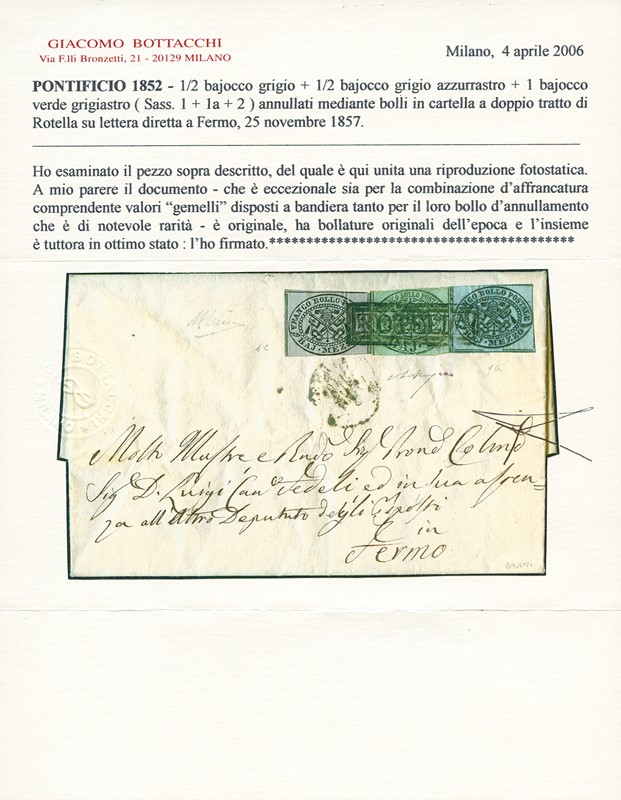 GIACOMO BOTTACCHI
Via F.lli Bronzetti, 21 - 20129 MILANO
Milano, 4 aprile 2006
PONTIFICIO 1852 - 1/2 bajocco grigio + 1/2 bajocco grigio azzurrastro + 1 bajocco
verde grigiastro ( Sass. 1 + 1a + 2 ) annullati mediante bolli in cartella a doppio tratto di
Rotella su lettera diretta a Fermo, 25 novembre 1857.
Ho esaminato il pezzo sopra descritto, del quale è qui unita una riproduzione fotostatica.
A mio parere il documento - che è eccezionale sia per la combinazione d’affrancatura
comprendente valori “gemelli” disposti a bandiera tanto per il loro bollo d’annullamento
che è di notevole rarità - è originale, ha bollature originali dell’epoca e l’insieme
è tuttora in ottimo stato : l’ho firmato.******************************************
FRANCO BOLLO
BAJ. MEZZO
BAJ.
FRANCO BOLLO POSTALE
MEZZO
Molto Illustre e
Sig D. Luigi Can Fedeli ed in sua assen=
za all'Altro Deputato degli Esposti
in
Fermo